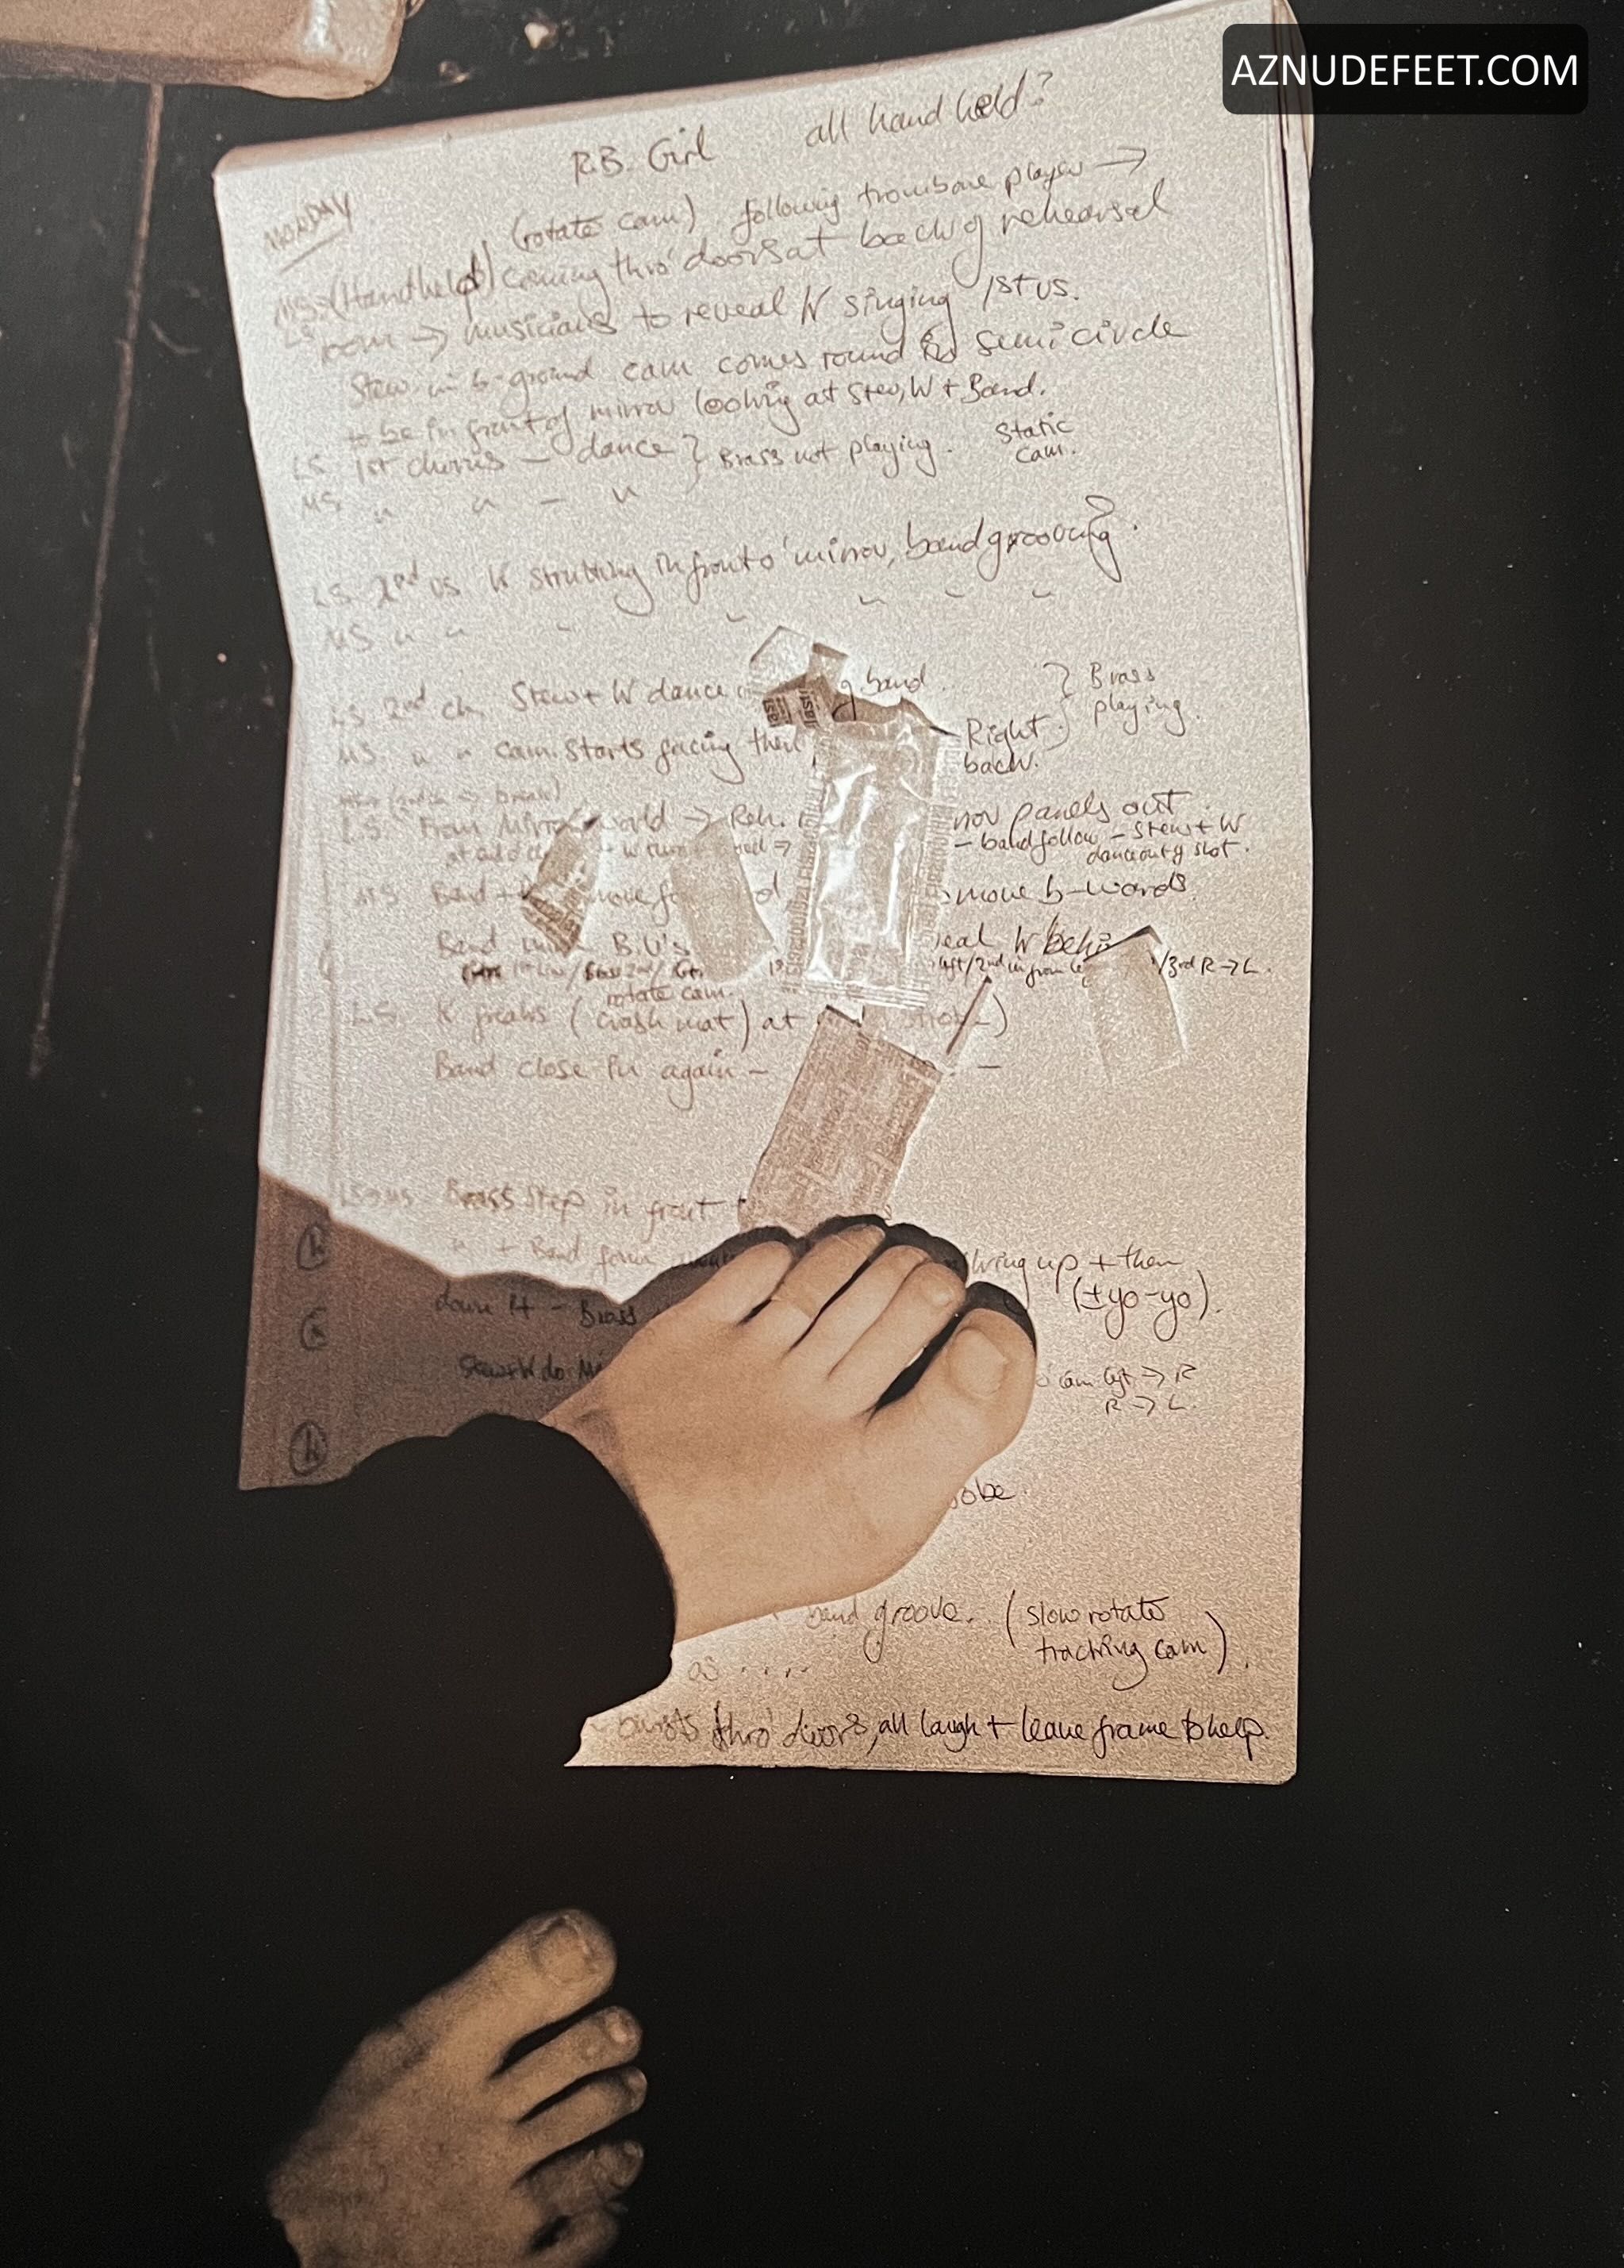 AZNUDEFEET.COM
R.B. Girl all hand held?
MONDAY
(rotate cam) following trombone player →
MS. (Handheld) coming thro' doors at back of rehearsal
LS room → musicians to reveal K singing 1st vs.
Stew in b-ground cam comes round in semicircle
to be in front of mirror looking at Stew, K + Band.
LS 1st chorus - dance } Brass not playing. Static
cam.
MS. " " - "
LS. 2nd vs K strutting in front o' mirror, band grooving.
MS. " "
LS. 2nd ch. Stew + K dance band. } Brass
playing.
MS. " " cam. starts facing Right
back.
LS. From Mirror world → Reh. panels out
- band follow - Stew + K
dance out of shot.
MS Band + move move b-wards.
Band B.U's K
1st 2nd /3rd R → L.
rotate cam.
LS. K freaks (crash mat) at
Band close in again -
Brass step in front
" + Band form up + then
(± yo-yo).
down it - Brass
Stew + K do
cam left → R
R → L.
band groove. (slow rotate
tracking cam).
as ....
thro' doors, all laugh + leave frame to help.